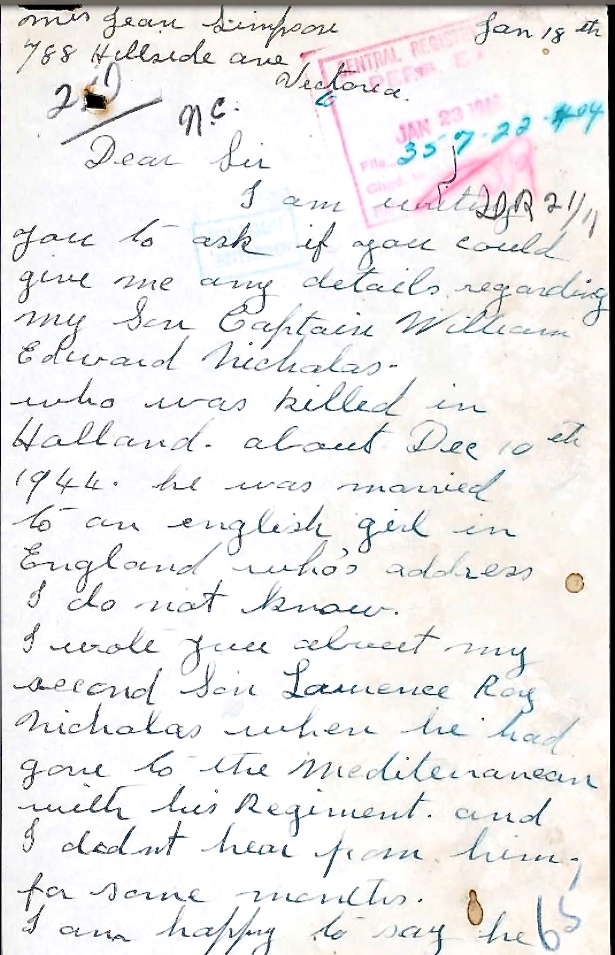 Mrs Jean Simpson
Jan 18th
788 Hillside ave
Victoria.
CENTRAL REGISTRY
JAN 23
35-7-22 #04
n.c.
Dear Sir
I am writing
you to ask if you could
give me any details regarding
my Son Captain William
Edward Nicholas.
who was killed in
Holland. about Dec 10th
1944. he was married
to an english girl in
England who's address
I do not know.
I wrote you about my
second Son Lawrence Roy
Nicholas when he had
gone to the Mediteranean
with his Regiment. and
I didnt hear from him,
for some months.
I am happy to say he
65